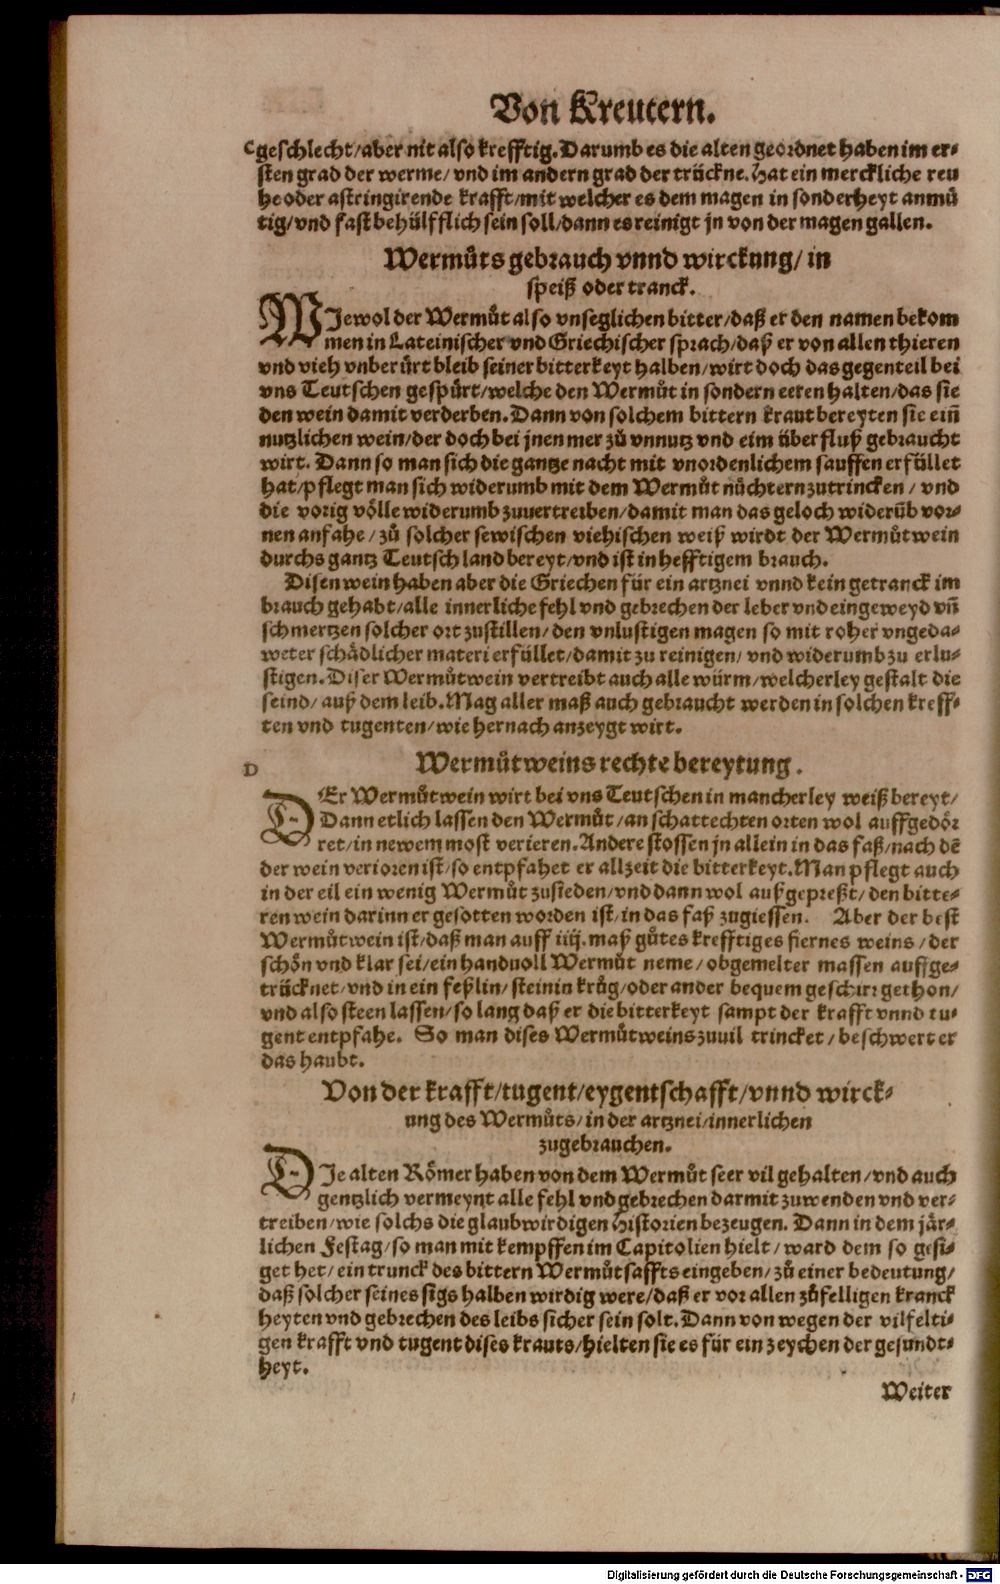 Von Kreutern.
C geschlecht/aber nit also krefftig. Darumb es die alten geordnet haben im er-
sten grad der werme/ vnd im andern grad der trückne. Hat ein merckliche reu
he oder astringirende krafft/mit welcher es dem magen in sonderheyt anmů
tig/vnd fast behülfflich sein soll/dann es reinigt jn von der magen gallen.
Wermůts gebrauch vnnd wirckung/ in
speiß oder tranck.
WJewol der Wermůt also vnseglichen bitter/daß er den namen bekom
men in Lateinischer vnd Griechischer sprach/daß er von allen thieren
vnd vieh vnberürt bleib seiner bitterkeyt halben/wirt doch das gegenteil bei
vns Teutschen gespürt/welche den Wermůt in sondern eeren halten/das sie
den wein damit verderben. Dann von solchem bittern kraut bereyten sie eiñ
nutzlichen wein/der doch bei jnen mer zů vnnutz vnd eim überfluß gebraucht
wirt. Dann so man sich die gantze nacht mit vnordenlichem sauffen erfüllet
hat/pflegt man sich widerumb mit dem Wermůt nüchtern zutrincken / vnd
die vorig völle widerumb zuuertreiben/damit man das geloch widerũb vor-
nen anfahe/zů solcher sewischen viehischen weiß wirdt der Wermůtwein
durchs gantz Teutschland bereyt/vnd ist in hefftigem brauch.
Disen wein haben aber die Griechen für ein artznei vnnd kein getranck im
brauch gehabt/alle innerliche fehl vnd gebrechen der leber vnd eingeweyd vñ
schmertzen solcher ort zustillen/den vnlustigen magen so mit roher vngeda-
weter schädlicher materi erfüllet/damit zu reinigen/ vnd widerumb zu erlu-
stigen. Diser Wermůtwein vertreibt auch alle würm/welcherley gestalt die
seind/auß dem leib. Mag aller maß auch gebraucht werden in solchen kreff-
ten vnd tugenten/wie hernach anzeygt wirt.
D Wermůtweins rechte bereytung.
DEr Wermůtwein wirt bei vns Teutschen in mancherley weiß bereyt/
Dann etlich lassen den Wermůt/an schattechten orten wol auffgedör
ret/in newem most verieren. Andere stossen jn allein in das faß/nach dẽ
der wein verioren ist/so entpfahet er allzeit die bitterkeyt. Man pflegt auch
in der eil ein wenig Wermůt zusieden/vnd dann wol außgepreßt/den bitte-
ren wein darinn er gesotten worden ist/in das faß zugiessen. Aber der best
Wermůtwein ist/daß man auff iiij. maß gůtes krefftiges fiernes weins/der
schön vnd klar sei/ein handuoll Wermůt neme/obgemelter massen auffge-
trücknet/vnd in ein feßlin/steinin krůg/oder ander bequem geschirr gethon/
vnd also steen lassen/so lang daß er die bitterkeyt sampt der krafft vnnd tu-
gent entpfahe. So man dises Wermůtweins zuuil trincket/beschwert er
das haubt.
Von der krafft/tugent/eygentschafft/vnnd wirck-
ung des Wermůts/in der artznei/innerlichen
zugebrauchen.
DJe alten Römer haben von dem Wermůt seer vil gehalten/vnd auch
gentzlich vermeynt alle fehl vnd gebrechen darmit zuwenden vnd ver-
treiben/wie solchs die glaubwirdigen Historien bezeugen. Dann in dem jär-
lichen Festag/so man mit kempffen im Capitolien hielt/ward dem so gesi-
get het/ein trunck des bittern Wermůtsaffts eingeben/zů einer bedeutung/
daß solcher seines sigs halben wirdig were/daß er vor allen zůfelligen kranck
heyten vnd gebrechen des leibs sicher sein solt. Dann von wegen der vilfelti-
gen krafft vnd tugent dises krauts/hielten sie es für ein zeychen der gesundt-
heyt.
Weiter
Digitalisierung gefördert durch die Deutsche Forschungsgemeinschaft - DFG